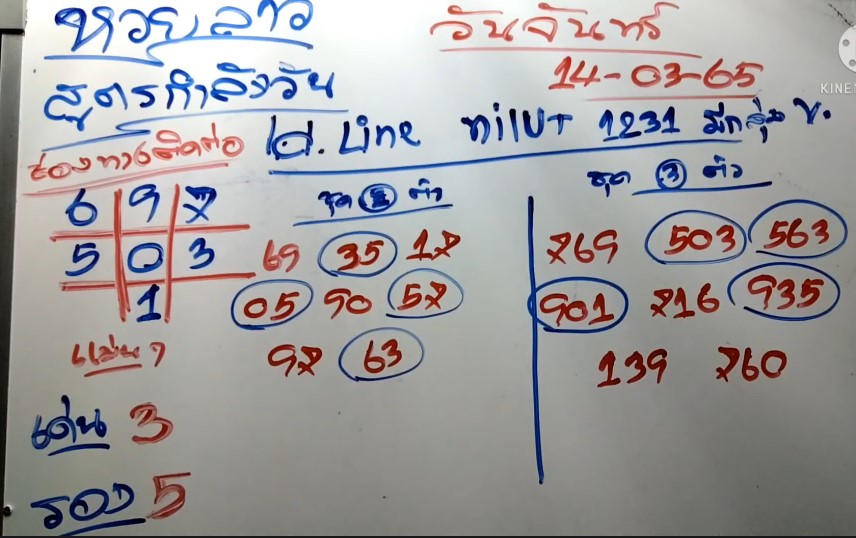 หวยลาว
วันจันทร์
สูตรกำลังวัน
14-03-65
ช่องทางติดต่อ
ไอดี. Line nilut 1231 มีกลุ่ม
ชุด 2 ตัว
ชุด 3 ตัว
6 9 7
5 0 3
1
69 35 17
05 90 57
97 63
769 503 563
901 716 935
139 760
เด่น 3
รอง 5
KINE